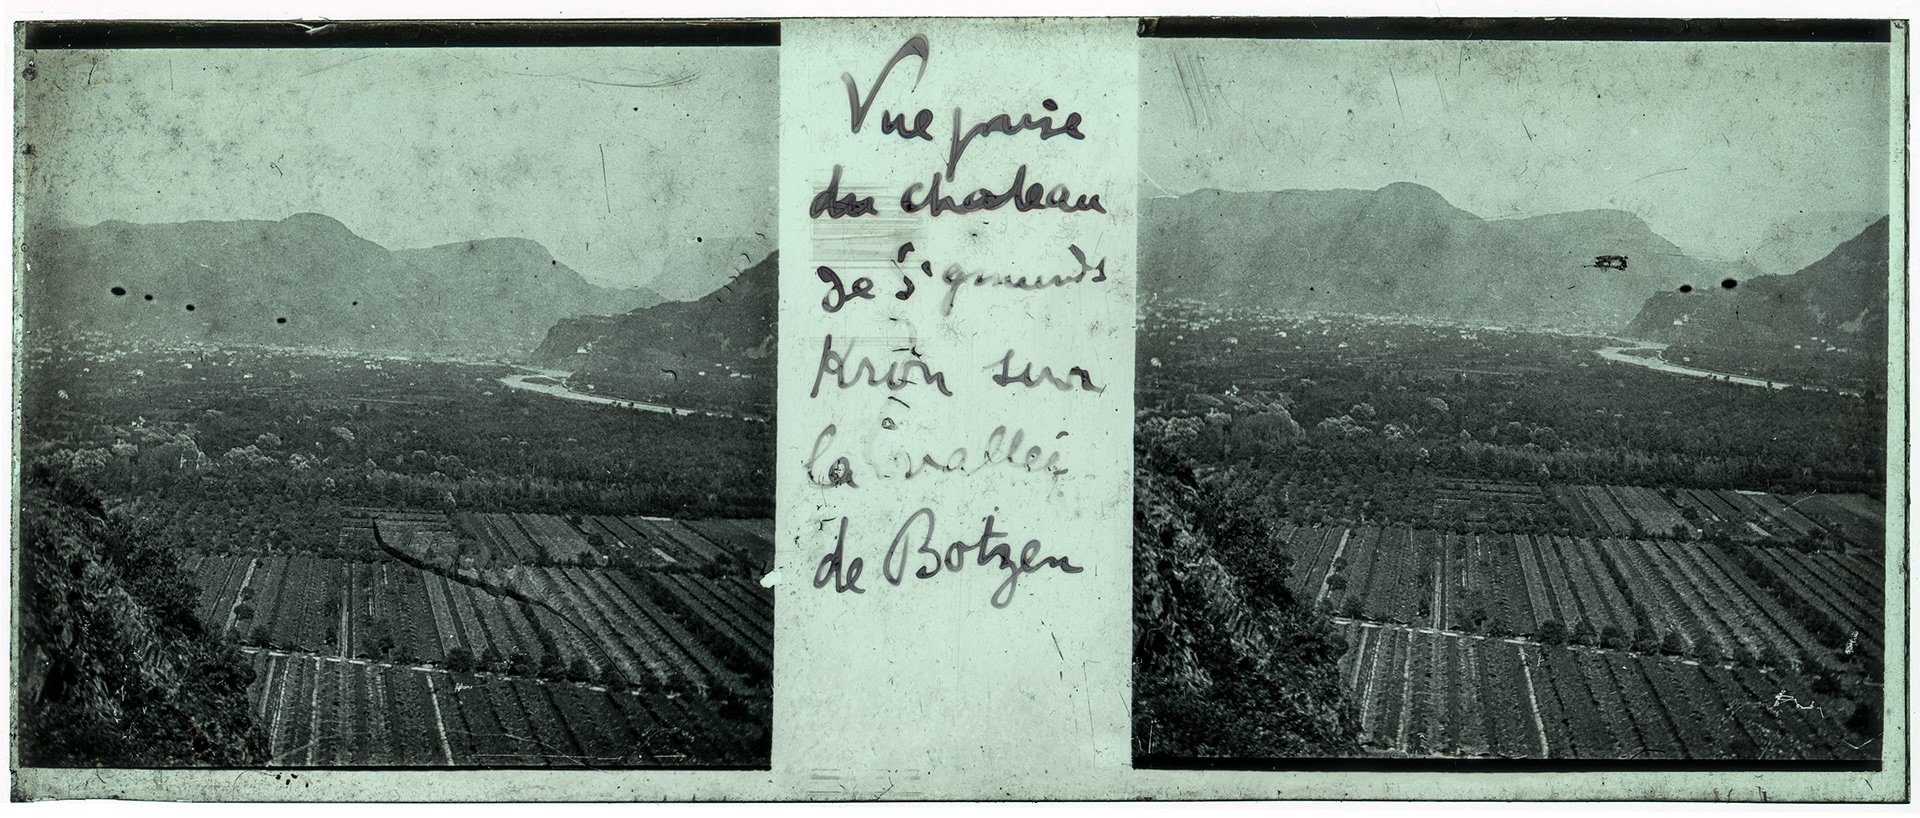 Vue prise
du chateau
de Sigmunds
Kron sur
la vallée
de Botzen